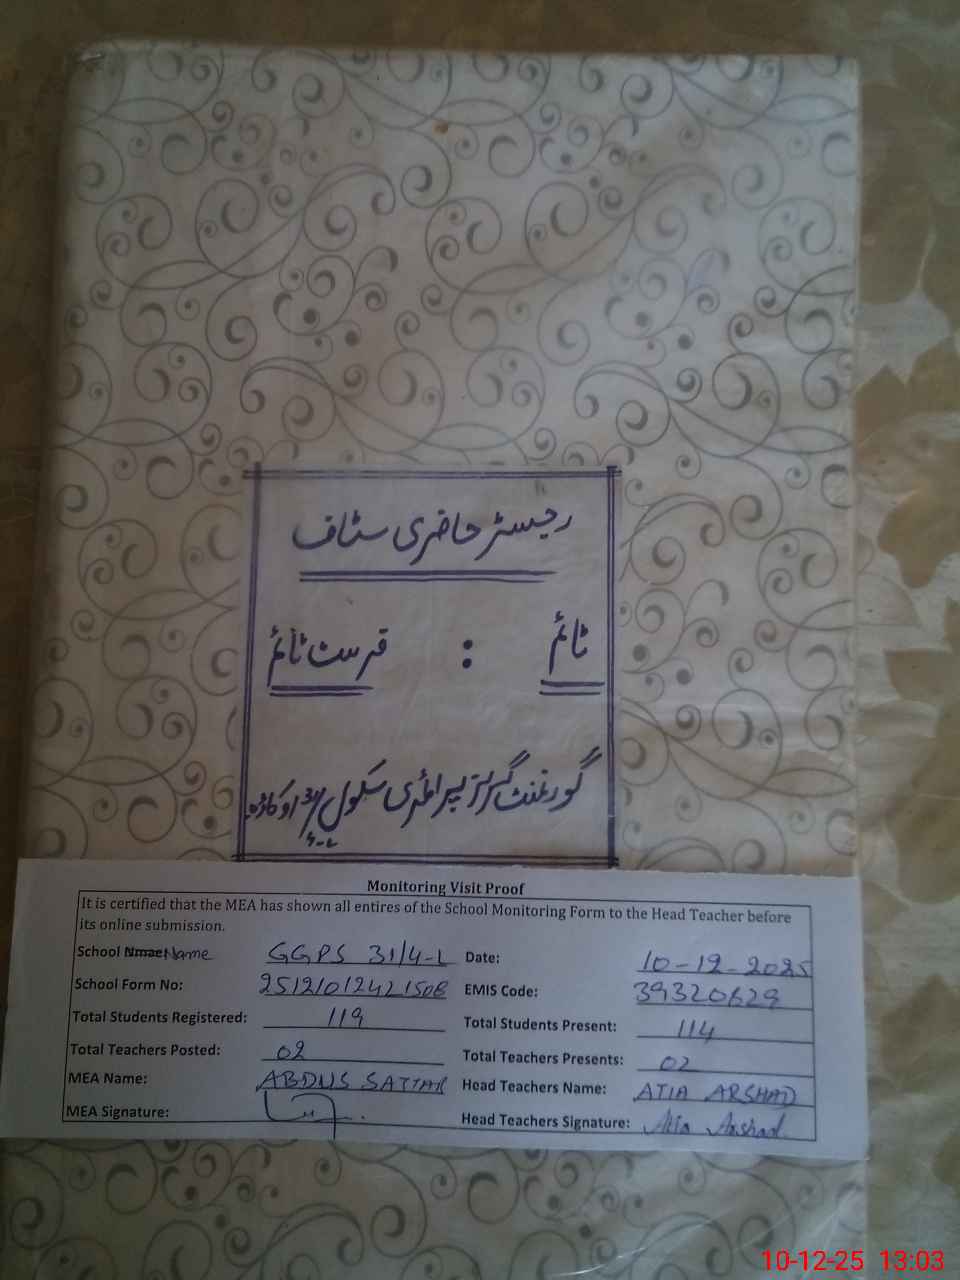 رجسٹر حاضری سٹاف
ٹائم : فرسٹ ٹائم
گورنمنٹ گرلز پرائمری سکول 31/4-L اوکاڑہ
Monitoring Visit Proof
It is certified that the MEA has shown all entires of the School Monitoring Form to the Head Teacher before
its online submission.
School Nmae: Name GGPS 31/4-L Date: 10-12-2025
School Form No: 25121012421508 EMIS Code: 39320629
Total Students Registered: 119 Total Students Present: 114
Total Teachers Posted: 02 Total Teachers Presents: 02
MEA Name: ABDUS SATTAR Head Teachers Name: ATIA ARSHAD
MEA Signature: Head Teachers Signature: Atia Arshad
10-12-25 13:03